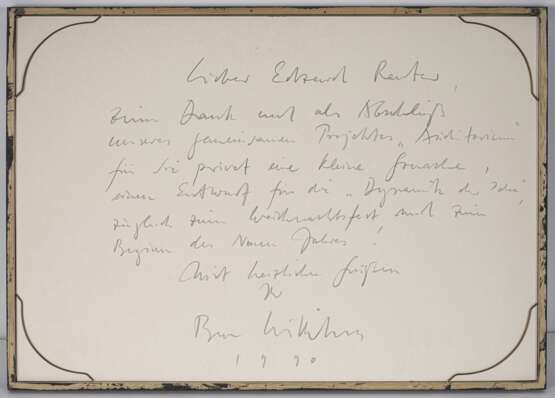 Lieber Edzard Reuter,
zum Dank und als Abschluß
unseres gemeinsamen Projektes „Auditorium"
für Sie privat eine kleine Gouache,
einen Entwurf für die „Dynamik der
zugleich zum Weihnachtsfest und zum
Beginn des Neuen Jahres!
Mit herzlichen Grüßen
Ihr
Ben Willikens
1990